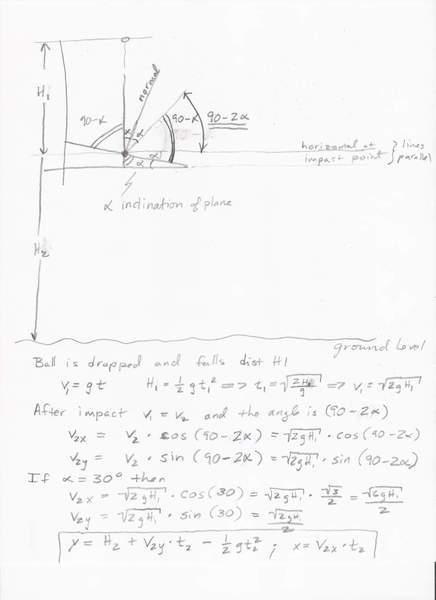 H₁
90-α
α
normal
α
90-α
90-2α
horizontal at
impact point
} lines
parallel
α
α
α inclination of plane
H₂
ground level
Ball is dropped and falls dist H1
V₁ = gt H₁ = ½ g t₁² => t₁ = √(2H₁/g) => V₁ = √(2gH₁)
After impact V₁ = V₂ and the angle is (90-2α)
V₂ₓ = V₂ · cos (90-2α) = √(2gH₁) · cos (90-2α)
V₂y = V₂ · sin (90-2α) = √(2gH₁) · sin (90-2α)
If α = 30° then
V₂ₓ = √(2gH₁) · cos(30) = √(2gH₁) · √3/2 = √(6gH₁)/2
V₂y = √(2gH₁) · sin (30) = √(2gH₁)/2
y = H₂ + V₂y · t₂ - ½ g t₂² ; x = V₂ₓ · t₂